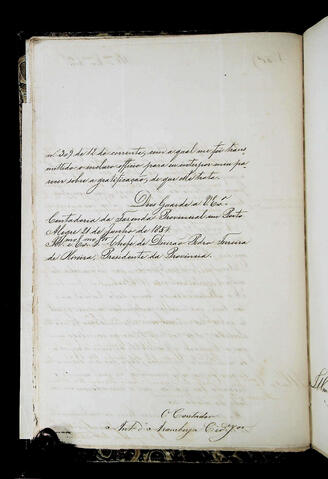 nº 303 de 12 do corrente, com a qual me foi trans
mettido o incluso officio para eu interpor meu pa
recer sobre a gratificação, de que elle trata.
Deos Guarde a V. Exª.
Contadoria da Fazenda Provincial em Porto
Alegre 21 de Junho de 1851
Illmo e Exmo Snr. Chefe de Divisão Pedro Ferreira
de Oliveira, Presidente da Provincia.
O Contador